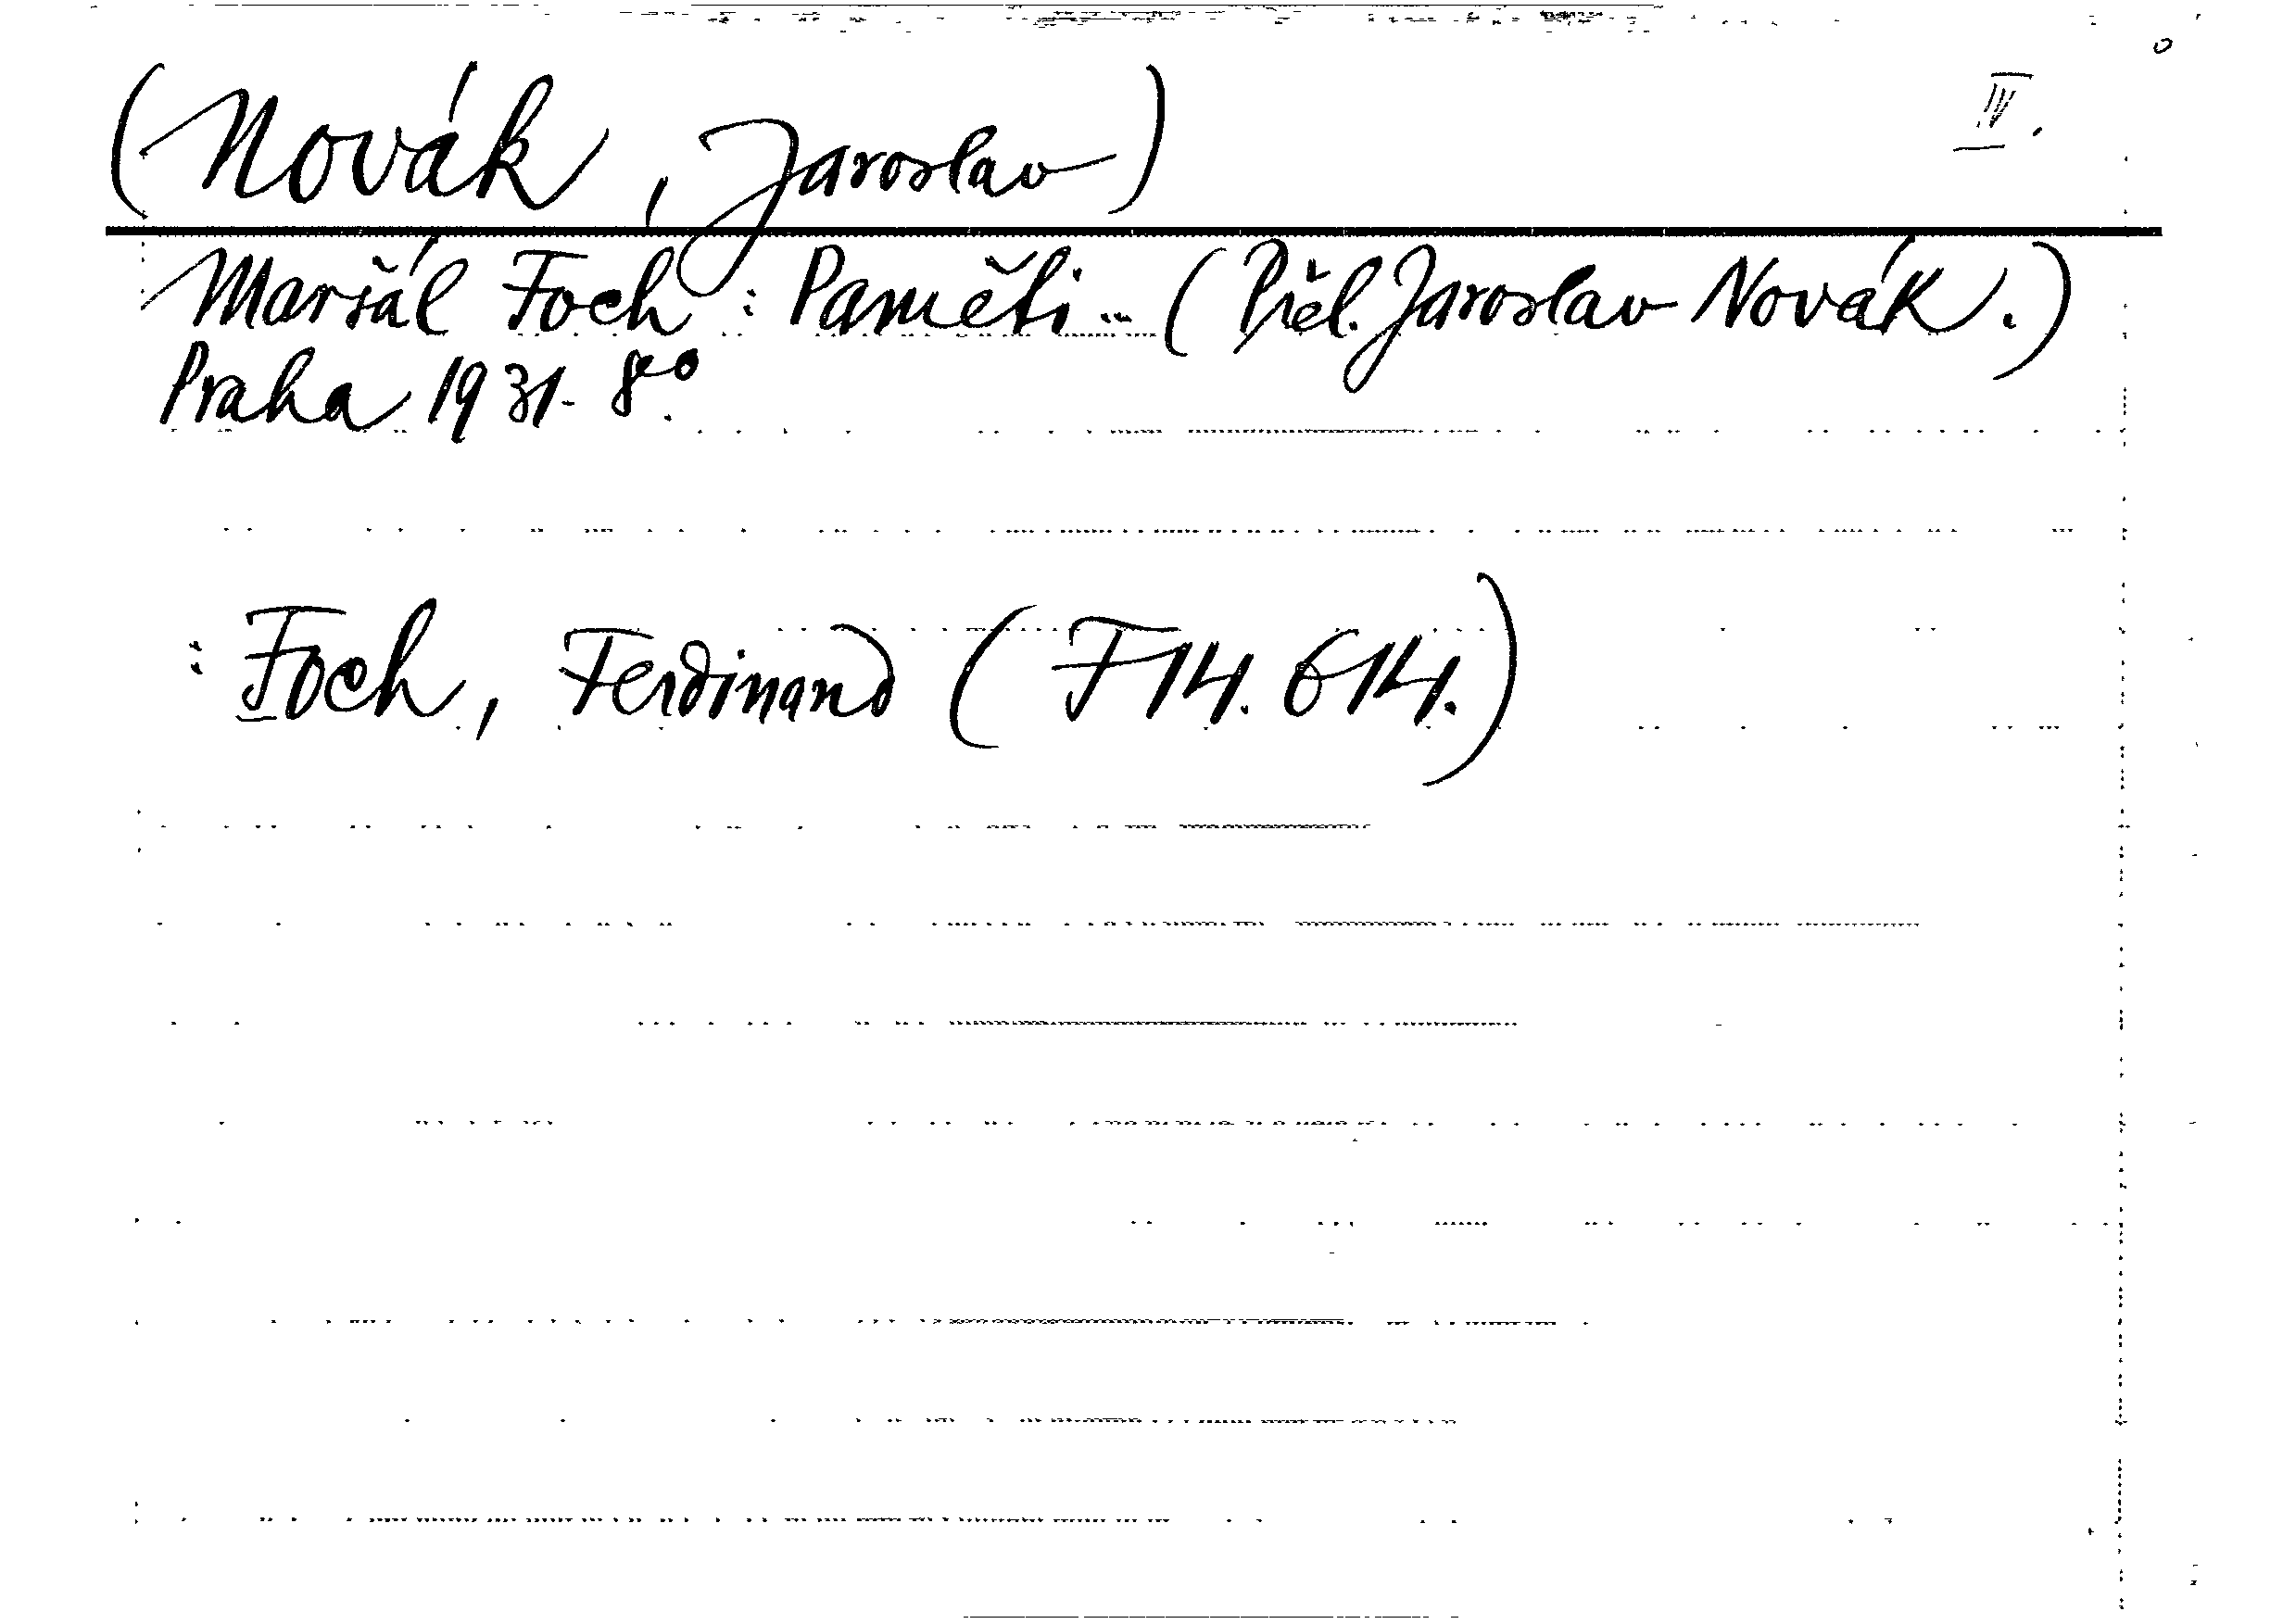 (Novák, Jaroslav) IV.
Maršál Foch: Paměti... (Přel. Jaroslav Novák.)
Praha 1931. 8°.
: Foch, Ferdinand (F 14.614.)